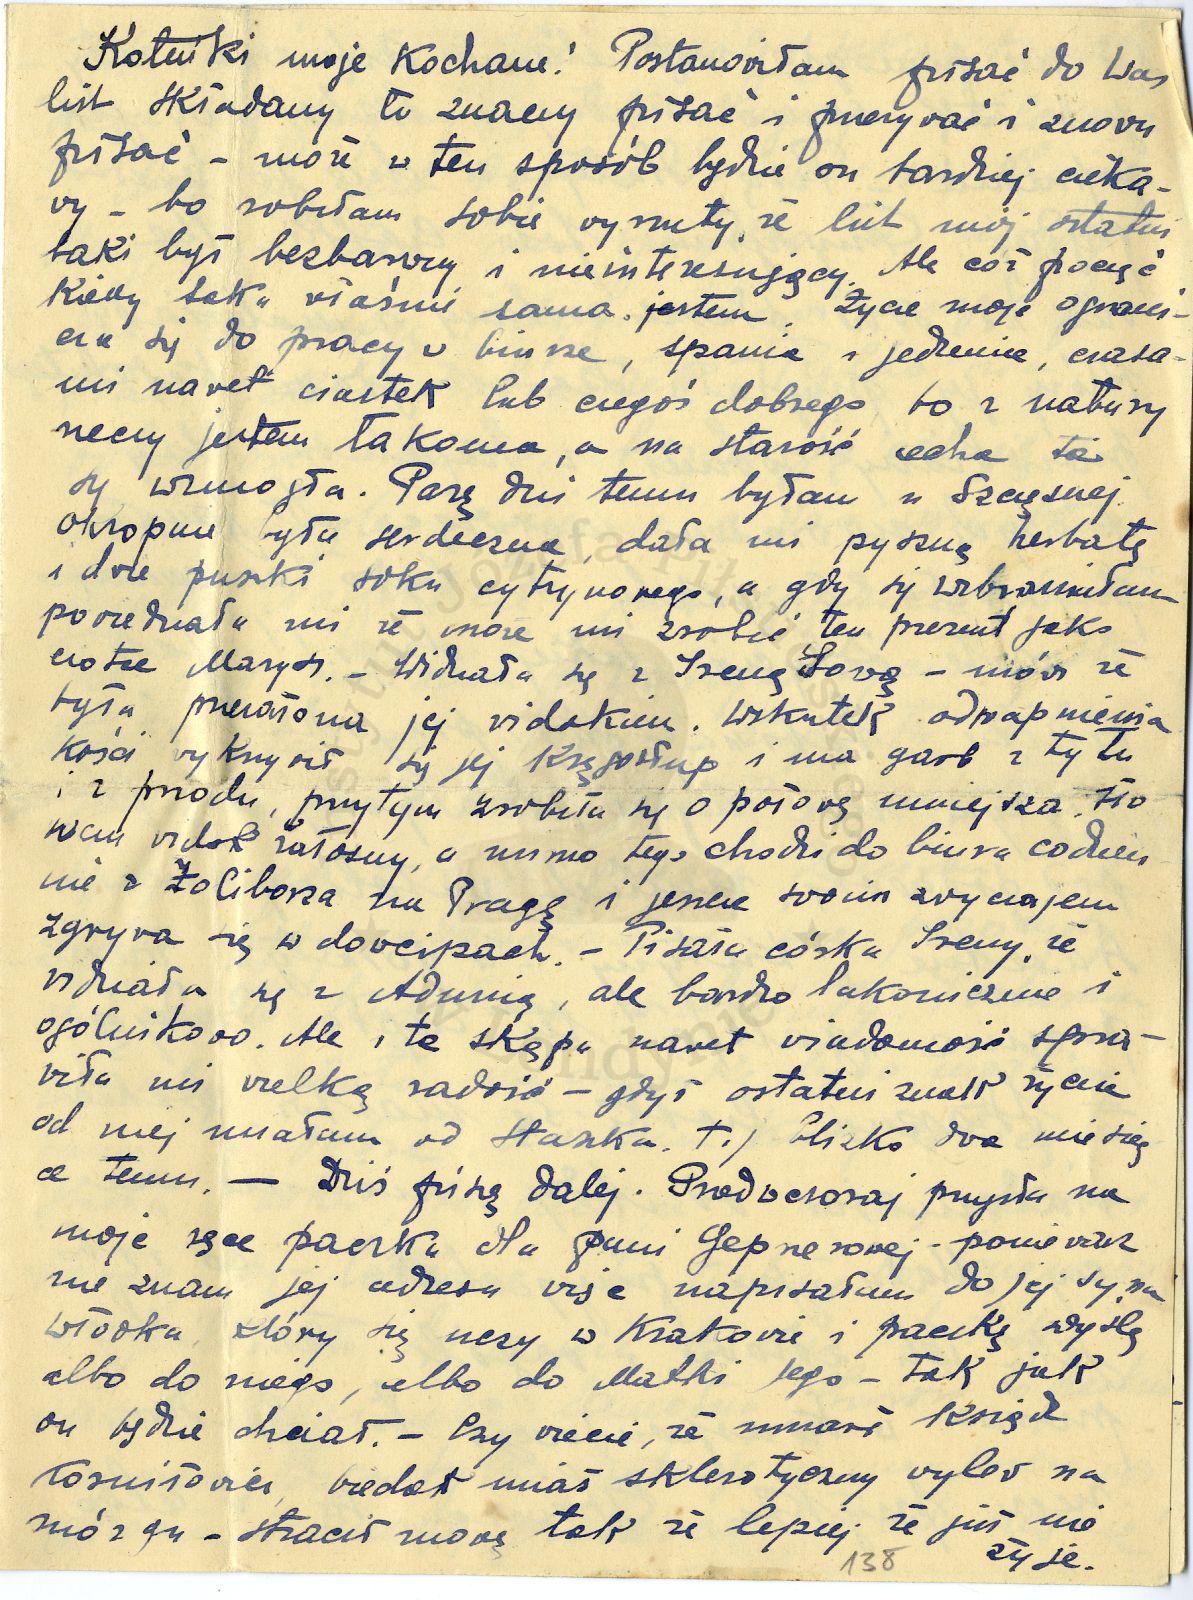 Kotuśki moje Kochane! Postanowiłam pisać do Was
list składany to znaczy pisać i przerywać i znowu
pisać – może w ten sposób będzie on bardziej cieka-
wy – bo robiłam sobie wyrzuty, że list mój ostatni
taki był bezbarwny i nieinteresujący. Ale cóż począć
kiedy taka właśnie sama jestem. Życie moje ograni-
cza się do pracy w biurze, spania i jedzenia, czasa-
mi nawet ciastek lub czegoś dobrego, bo z natury
rzeczy jestem łakoma, a na starość cecha ta
się wzmogła. Parę dni temu byłam u Szczęsnej
okropnie była serdeczna, dała mi pyszną herbatę
i dwie puszki soku cytrynowego, a gdy się wzbraniałam
powiedziała mi że może mi zrobić ten prezent jako
ciotce Marysi. – Widziała się z Ireną – mówi że
była przerażona jej widokiem. Wskutek odwapnienia
kości wykrzywił się jej kręgosłup i ma garb z tyłu
i z przodu, przytym zrobiła się o połowę mniejsza. Sło
wem widok żałosny, a mimo tego chodzi do biura codzien
nie z Żoliborza na Pragę i jeszcze swoim zwyczajem
zgrywa się w dowcipach. – Pisała córka Ireny, że
widziała się z Adunią, ale bardzo lakonicznie i
ogólnikowo. Ale i ta skąpa nawet wiadomość spra-
wiła mi wielką radość – gdyż ostatni znak życia
od niej miałam od Staszka. t.j blizko dwa miesią
ce temu. — Dziś piszę dalej. Przedwczoraj przyszła na
moje ręce paczka dla pani Gepnerowej – ponieważ
nie znam jej adresu więc napisałam do jej syna
Włodka, który się uczy w Krakowie i paczkę wyślę
albo do niego, albo do Matki jego – tak jak
on będzie chciał. – Czy wiecie, że umarł Ksiądz
biedak miał sklerotyczny wylew na
mózgu – stracił mowę tak że lepiej że już nie
żyje.
138